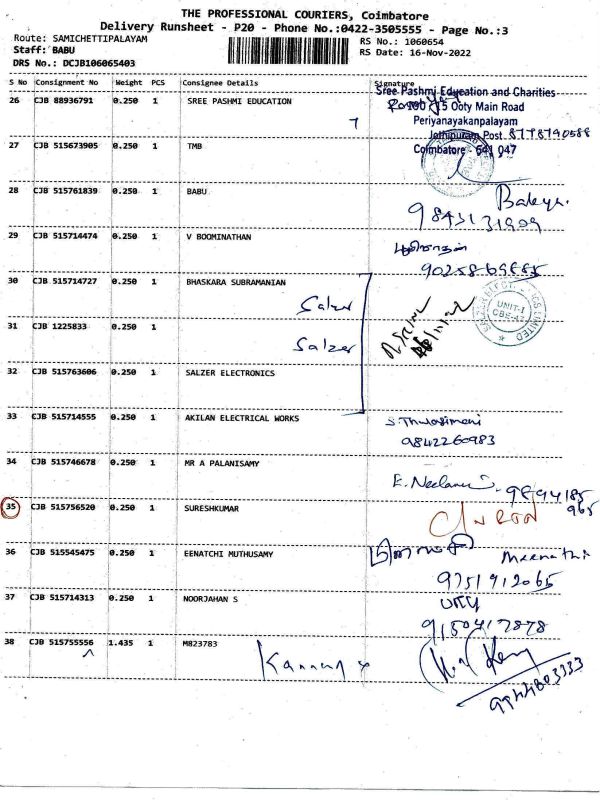 THE PROFESSIONAL COURIERS, Coimbatore
Delivery Runsheet - P20 - Phone No.:0422-3505555 - Page No.:3
Route: SAMICHETTIPALAYAM RS No.: 1060654
Staff: BABU RS Date: 16-Nov-2022
DRS No.: DCJB106065403
S No Consignment No Weight PCS Consignee Details Signature
26 CJB 88936791 0.250 1 SREE PASHMI EDUCATION
Sree Pashmi Education and Charities
5 Ooty Main Road
Periyanayakanpalayam
Jothipuram Post 8778790588
Coimbatore - 641 047
27 CJB 515673905 0.250 1 TMB
28 CJB 515761839 0.250 1 BABU
9843131909
29 CJB 515714474 0.250 1 V BOOMINATHAN
30 CJB 515714727 0.250 1 BHASKARA SUBRAMANIAN
Salzer
UNIT-I
31 CJB 1225833 0.250 1
Salzer
32 CJB 515763606 0.250 1 SALZER ELECTRONICS
33 CJB 515714555 0.250 1 AKILAN ELECTRICAL WORKS
9842260983
34 CJB 515746678 0.250 1 MR A PALANISAMY
9894185
965
35 CJB 515756520 0.250 1 SURESHKUMAR
36 CJB 515545475 0.250 1 EENATCHI MUTHUSAMY
Meenathi
9751912065
37 CJB 515714313 0.250 1 NOORJAHAN S
9150417878
38 CJB 515755556 1.435 1 M823783
9944803333